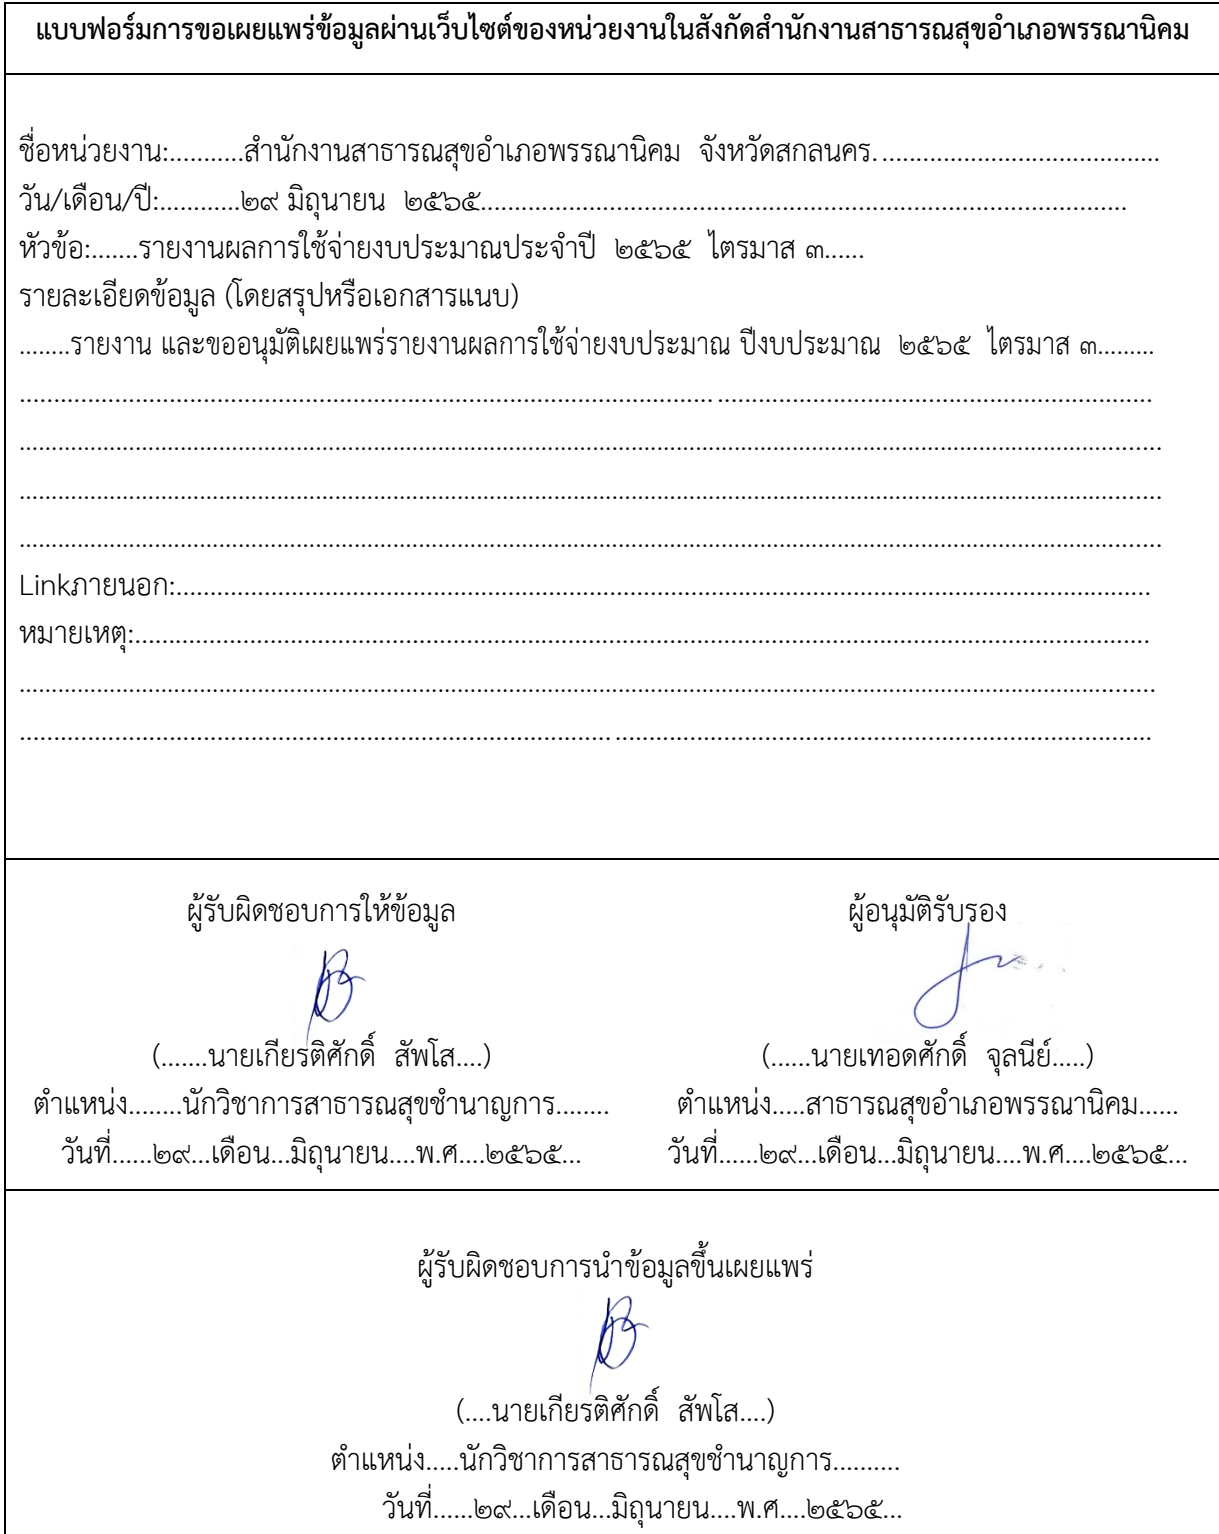 แบบฟอร์มการขอเผยแพร่ข้อมูลผ่านเว็บไซต์ของหน่วยงานในสังกัดสำนักงานสาธารณสุขอำเภอพรรณานิคม
ชื่อหน่วยงาน:...........สำนักงานสาธารณสุขอำเภอพรรณานิคม จังหวัดสกลนคร.........................................
วัน/เดือน/ปี:............๒๙ มิถุนายน ๒๕๖๕...............................................................................................
หัวข้อ:.......รายงานผลการใช้จ่ายงบประมาณประจำปี ๒๕๖๕ ไตรมาส ๓......
รายละเอียดข้อมูล (โดยสรุปหรือเอกสารแนบ)
........รายงาน และขออนุมัติเผยแพร่รายงานผลการใช้จ่ายงบประมาณ ปีงบประมาณ ๒๕๖๕ ไตรมาส ๓.........
Linkภายนอก:................................................................................................................................................
หมายเหตุ:......................................................................................................................................................
ผู้รับผิดชอบการให้ข้อมูล ผู้อนุมัติรับรอง
(.......นายเกียรติศักดิ์ สัพโส....) (......นายเทอดศักดิ์ จุลนีย์.....)
ตำแหน่ง........นักวิชาการสาธารณสุขชำนาญการ........ ตำแหน่ง.....สาธารณสุขอำเภอพรรณานิคม......
วันที่......๒๙...เดือน...มิถุนายน....พ.ศ....๒๕๖๕... วันที่......๒๙...เดือน...มิถุนายน....พ.ศ....๒๕๖๕...
ผู้รับผิดชอบการนำข้อมูลขึ้นเผยแพร่
(....นายเกียรติศักดิ์ สัพโส....)
ตำแหน่ง.....นักวิชาการสาธารณสุขชำนาญการ..........
วันที่......๒๙...เดือน...มิถุนายน....พ.ศ....๒๕๖๕...